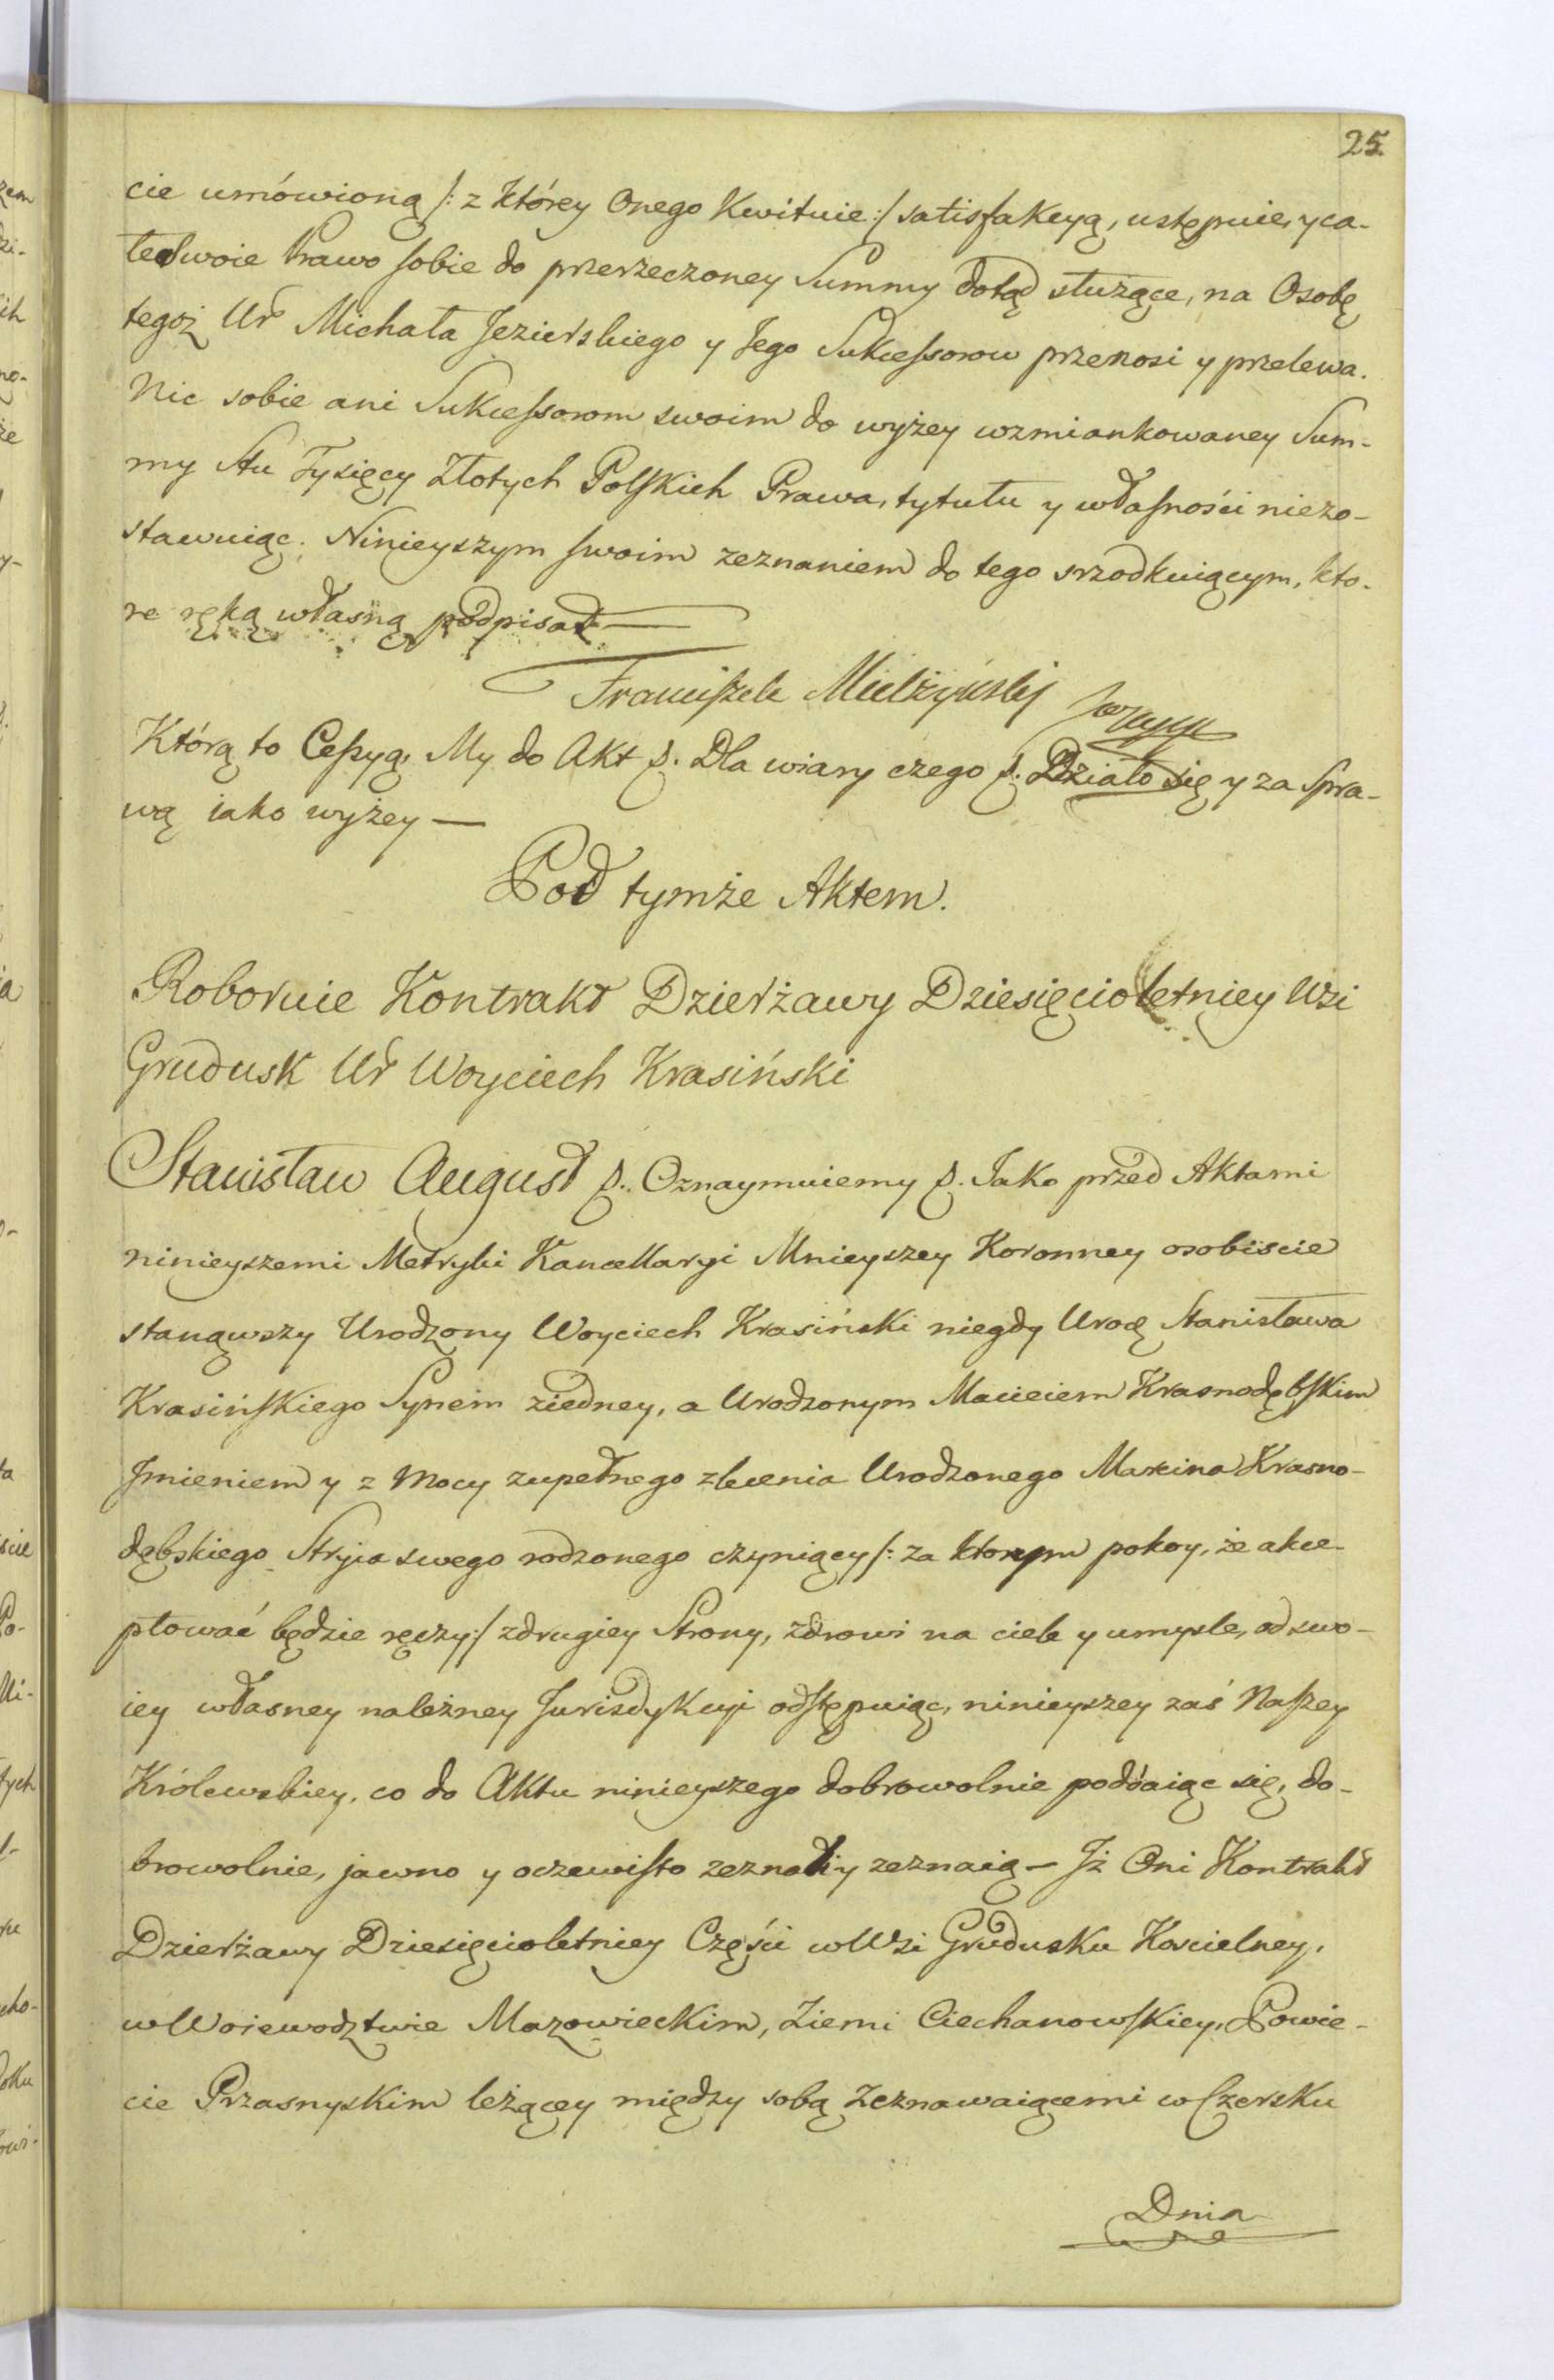 25.
cie umówioną /: z którey Onego Kwituie :/ satisfakcyą, ustępuie, y ca-
łe swoie Prawo sobie do przerzeczoney Summy dotąd służące, na Osobę
tegoż Ur Michała Jezierskiego y Jego Sukcessorow przenosi y przelewa.
Nic sobie ani Sukcessorom swoim do wyżey wzmiankowaney Sum-
my Stu Tysięcy Złotych Polskich Prawa, tytułu y własności niezo-
stawuiąc. Ninieyszym swoim zeznaniem do tego srzodkuiącym, kto-
re ręką własną podpisał —
Franciszek Mielżyński
Którą to Cessyą, My do Akt p. Dla wiary czego p. Działo się y za Spra-
wą iako wyżey —
Pod tymże Aktem.
Roboruie Kontrakt Dzierżawy Dziesięcioletniey Wsi
Grudusk Ur Woyciech Krasiński
Stanisław August p. Oznaymuiemy p. Jako przed Aktami
ninieyszemi Metryki Kancellaryi Mnieyszey Koronney osobiscie
stanąwszy Urodzony Woyciech Krasiński niegdy Urodz Stanisława
Krasińskiego Synem ziedney, a Urodzonym Macieiem Krasnodębskim
Jmieniem y z Mocy zupełnego zlecenia Urodzonego Marcina Krasno-
dębskiego Stryia swego rodzonego czyniący /: za ktorym pokoy, że akce-
ptować będzie ręczy :/ zdrugiey Strony, zdrowi na ciele y umysle, od swo-
iey własney należney Jurisdykcyi odstępuiąc, ninieyszey zaś Naszey
Królewskiey, co do Aktu ninieyszego dobrowolnie poddaiąc się, do-
browolnie, jawno y oczewisto zeznali y zeznaią — Jż Oni Kontrakt
Dzierżawy Dziesięcioletniey Części w Wsi Grudusku Koscielney,
w Woiewodztwie Mazowieckim, Ziemi Ciechanowskiey, Powie-
cie Przasnyskim leżącey między sobą zeznawaiącemi w Czersku
Dnia